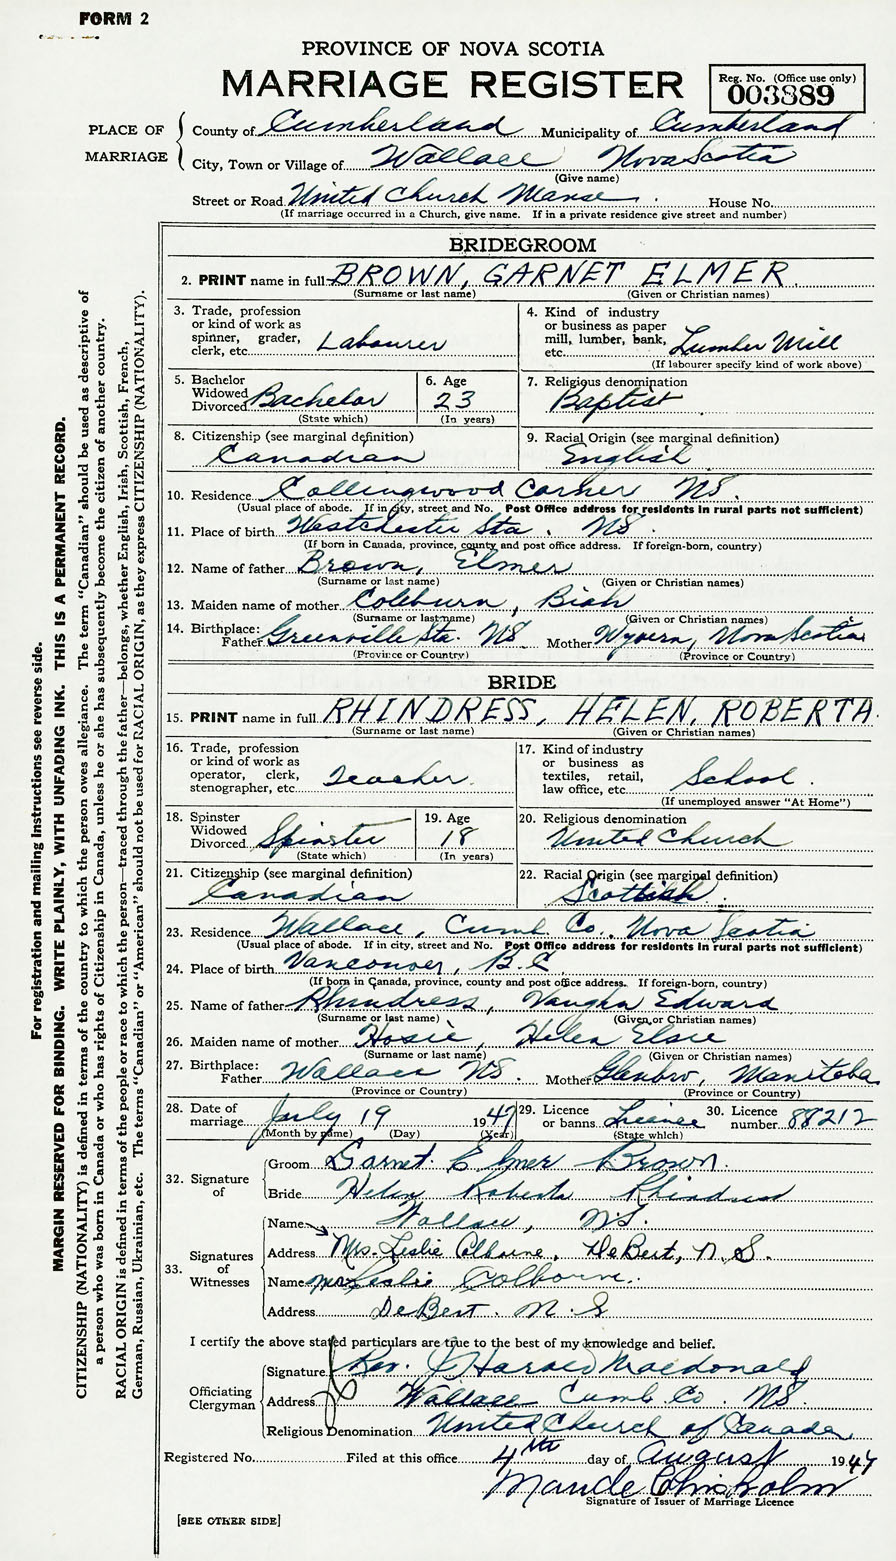 FORM 2
PROVINCE OF NOVA SCOTIA
MARRIAGE REGISTER
Reg. No. (Office use only)
003889
PLACE OF MARRIAGE
County of Cumberland Municipality of Cumberland
City, Town or Village of Wallace Nova Scotia
(Give name)
Street or Road United Church Manse House No.
(If marriage occurred in a Church, give name. If in a private residence give street and number)
BRIDEGROOM
2. PRINT name in full BROWN, GARNET ELMER
(Surname or last name) (Given or Christian names)
3. Trade, profession or kind of work as spinner, grader, clerk, etc. Labourer
4. Kind of industry or business as paper mill, lumber, bank, etc. Lumber Mill
(If labourer specify kind of work above)
5. Bachelor Widowed Divorced Bachelor
(State which)
6. Age 23
(In years)
7. Religious denomination
Baptist
8. Citizenship (see marginal definition)
Canadian
9. Racial Origin (see marginal definition)
English
10. Residence Collingwood Corner NS.
(Usual place of abode. If in city, street and No. Post Office address for residents in rural parts not sufficient)
11. Place of birth Westchester Sta. NS.
(If born in Canada, province, county and post office address. If foreign-born, country)
12. Name of father Brown, Elmer
(Surname or last name) (Given or Christian names)
13. Maiden name of mother Coleburn, Biah
(Surname or last name) (Given or Christian names)
14. Birthplace: Father Greenville Sta. NS Mother Wyvern, Nova Scotia
(Province or Country) (Province or Country)
BRIDE
15. PRINT name in full RHINDRESS, HELEN, ROBERTA
(Surname or last name) (Given or Christian names)
16. Trade, profession or kind of work as operator, clerk, stenographer, etc. Teacher.
17. Kind of industry or business as textiles, retail, law office, etc. School.
(If unemployed answer "At Home")
18. Spinster Widowed Divorced Spinster
(State which)
19. Age 18
(In years)
20. Religious denomination
United Church
21. Citizenship (see marginal definition)
Canadian
22. Racial Origin (see marginal definition)
Scottish
23. Residence Wallace, Cumb. Co. Nova Scotia
(Usual place of abode. If in city, street and No. Post Office address for residents in rural parts not sufficient)
24. Place of birth Vancouver, B.C
(If born in Canada, province, county and post office address. If foreign-born, country)
25. Name of father Rhindress, Vaughn Edward
(Surname or last name) (Given or Christian names)
26. Maiden name of mother Hosie, Helen Elsie
(Surname or last name) (Given or Christian names)
27. Birthplace: Father Wallace NS. Mother Glenbro, Manitoba
(Province or Country) (Province or Country)
28. Date of marriage July 19 1947
(Month by name) (Day) (Year)
29. Licence or banns Licence
(State which)
30. Licence number 88212
32. Signature of
Groom Garnet Elmer Brown.
Bride Helen Roberta Rhindress
33. Signatures of Witnesses
Name Wallace, NS.
Address Mrs. Leslie Colborne, DeBert, N.S.
Name Mrs Leslie Colborn.
Address DeBert. N.S
I certify the above stated particulars are true to the best of my knowledge and belief.
Officiating Clergyman
Signature Rev. J Harold Macdonald
Address Wallace Cumb. Co. NS.
Religious Denomination United Church of Canada
Registered No. Filed at this office 4th day of August 1947
Maude Chisholm
Signature of Issuer of Marriage Licence
[SEE OTHER SIDE]
For registration and mailing instructions see reverse side.
MARGIN RESERVED FOR BINDING. WRITE PLAINLY, WITH UNFADING INK. THIS IS A PERMANENT RECORD.
CITIZENSHIP (NATIONALITY) is defined in terms of the country to which the person owes allegiance. The term "Canadian" should be used as descriptive of
a person who was born in Canada or who has rights of Citizenship in Canada, unless he or she has subsequently become the citizen of another country.
RACIAL ORIGIN is defined in terms of the people or race to which the person—traced through the father—belongs, whether English, Irish, Scottish, French,
German, Russian, Ukrainian, etc. The terms "Canadian" or "American" should not be used for RACIAL ORIGIN, as they express CITIZENSHIP (NATIONALITY).